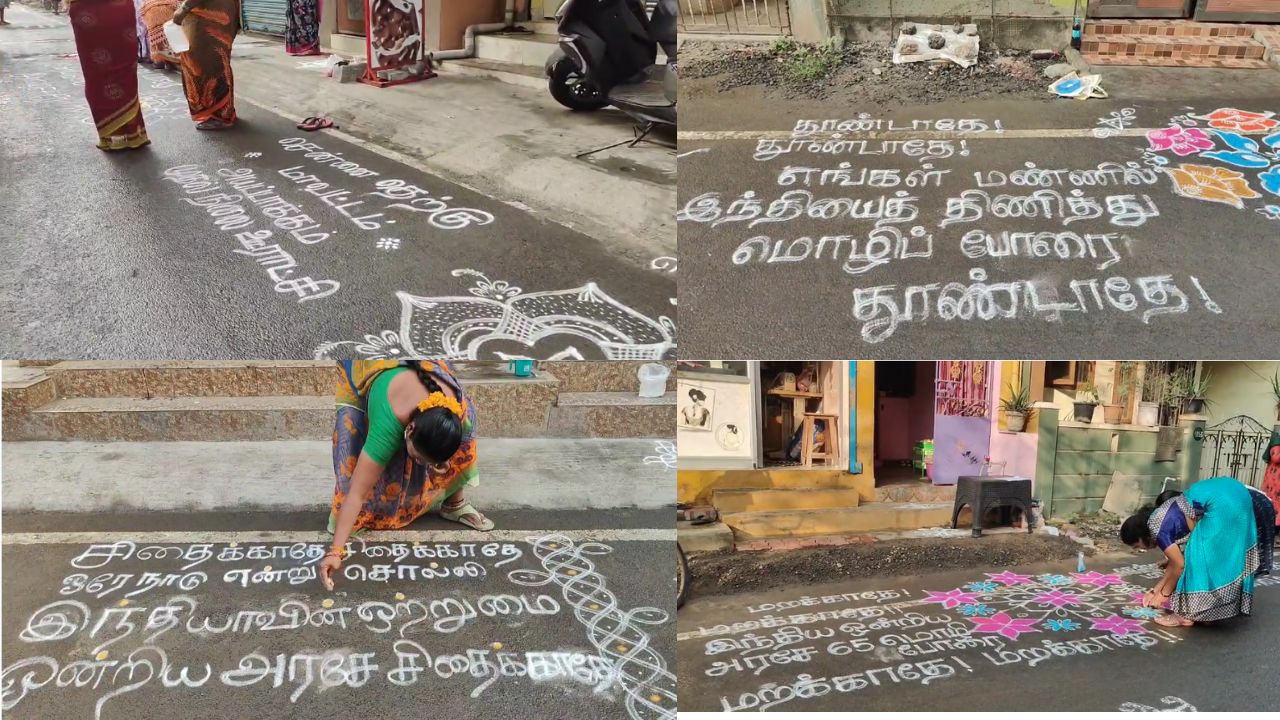 சென்னை தெற்கு
மாவட்டம்
அயப்பாக்கம்
முதல் நிலை ஊராட்சி
தூண்டாதே!
தூண்டாதே!
எங்கள் மண்ணில்
இந்தியைத் திணித்து
மொழிப் போரை
தூண்டாதே!
சிதைக்காதே சிதைக்காதே
ஒரே நாடு என்று சொல்லி
இந்தியாவின் ஒற்றுமை
ஒன்றிய அரசே சிதைக்காதே
மறக்காதே!
மறக்காதே!
இந்திய ஒன்றிய
அரசே 65 மொழி போரை
மறக்காதே! மறக்காதே!